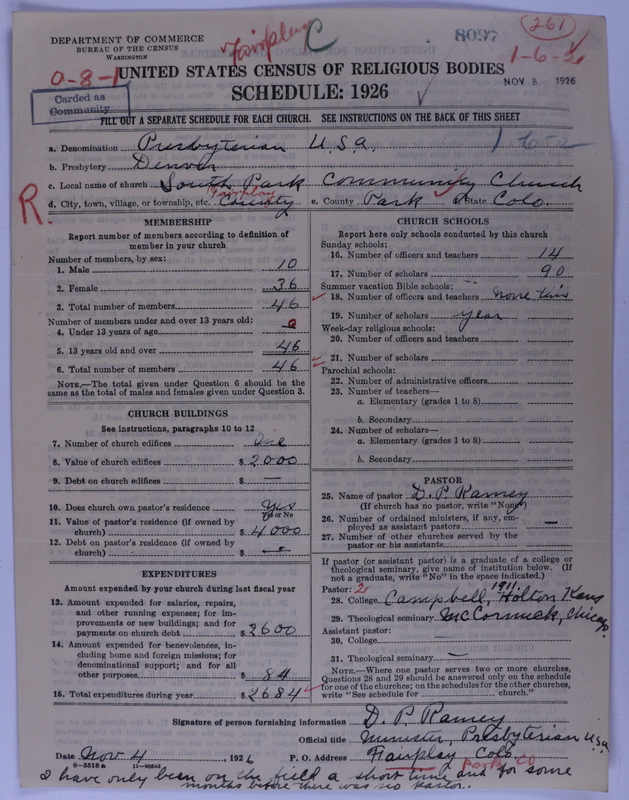 DEPARTMENT OF COMMERCE
BUREAU OF THE CENSUS
WASHINGTON
Fairplay C
8097
261
1-6-2
0-8-1
UNITED STATES CENSUS OF RELIGIOUS BODIES
NOV 8 1926
SCHEDULE: 1926
Carded as
Community
FILL OUT A SEPARATE SCHEDULE FOR EACH CHURCH. SEE INSTRUCTIONS ON THE BACK OF THIS SHEET
a. Denomination Presbyterian U.S.A. 1 6-2
b. Presbytery Denver
c. Local name of church South Park Community Church
R.
d. City, town, village, or township, etc. Fairplay County e. County Park State Colo.
MEMBERSHIP
Report number of members according to definition of
member in your church
Number of members, by sex:
1. Male 10
2. Female 36
3. Total number of members 46
Number of members under and over 13 years old:
4. Under 13 years of age 0
5. 13 years old and over 46
6. Total number of members 46
NOTE.—The total given under Question 6 should be the
same as the total of males and females given under Question 3.
CHURCH BUILDINGS
See instructions, paragraphs 10 to 12
7. Number of church edifices One
8. Value of church edifices $ 2000
9. Debt on church edifices $ —
10. Does church own pastor's residence Yes
Yes or No
11. Value of pastor's residence (if owned by
church) $ 4000
12. Debt on pastor's residence (if owned by
church) $ —
EXPENDITURES
Amount expended by your church during last fiscal year
13. Amount expended for salaries, repairs,
and other running expenses; for im-
provements or new buildings; and for
payments on church debt $ 2600
14. Amount expended for benevolences, in-
cluding home and foreign missions; for
denominational support; and for all
other purposes $ 84
15. Total expenditures during year $ 2684
CHURCH SCHOOLS
Report here only schools conducted by this church
Sunday schools:
16. Number of officers and teachers 14
17. Number of scholars 90
Summer vacation Bible schools:
18. Number of officers and teachers none this
19. Number of scholars year
Week-day religious schools:
20. Number of officers and teachers
21. Number of scholars
Parochial schools:
22. Number of administrative officers
23. Number of teachers—
a. Elementary (grades 1 to 8)
b. Secondary
24. Number of scholars—
a. Elementary (grades 1 to 8)
b. Secondary
PASTOR
25. Name of pastor D. P. Ramey
(If church has no pastor, write "None")
26. Number of ordained ministers, if any, em-
ployed as assistant pastors —
27. Number of other churches served by the
pastor or his assistants
If pastor (or assistant pastor) is a graduate of a college or
theological seminary, give name of institution below. (If
not a graduate, write "No" in the space indicated.)
Pastor: 2 1911
28. College Campbell, Holton Kans
29. Theological seminary McCormick, Chicago
Assistant pastor:
30. College
31. Theological seminary —
NOTE.—Where one pastor serves two or more churches,
Questions 28 and 29 should be answered only on the schedule
for one of the churches; on the schedules for the other churches,
write "See schedule for church."
Signature of person furnishing information D. P. Ramey
Official title Minister, Presbyterian U.S.A.
Date Nov 4, 1926 P. O. Address Fairplay Colo.
Park Co
8-5518 a
I have only been on the field a short time and for some
months before there was no pastor.